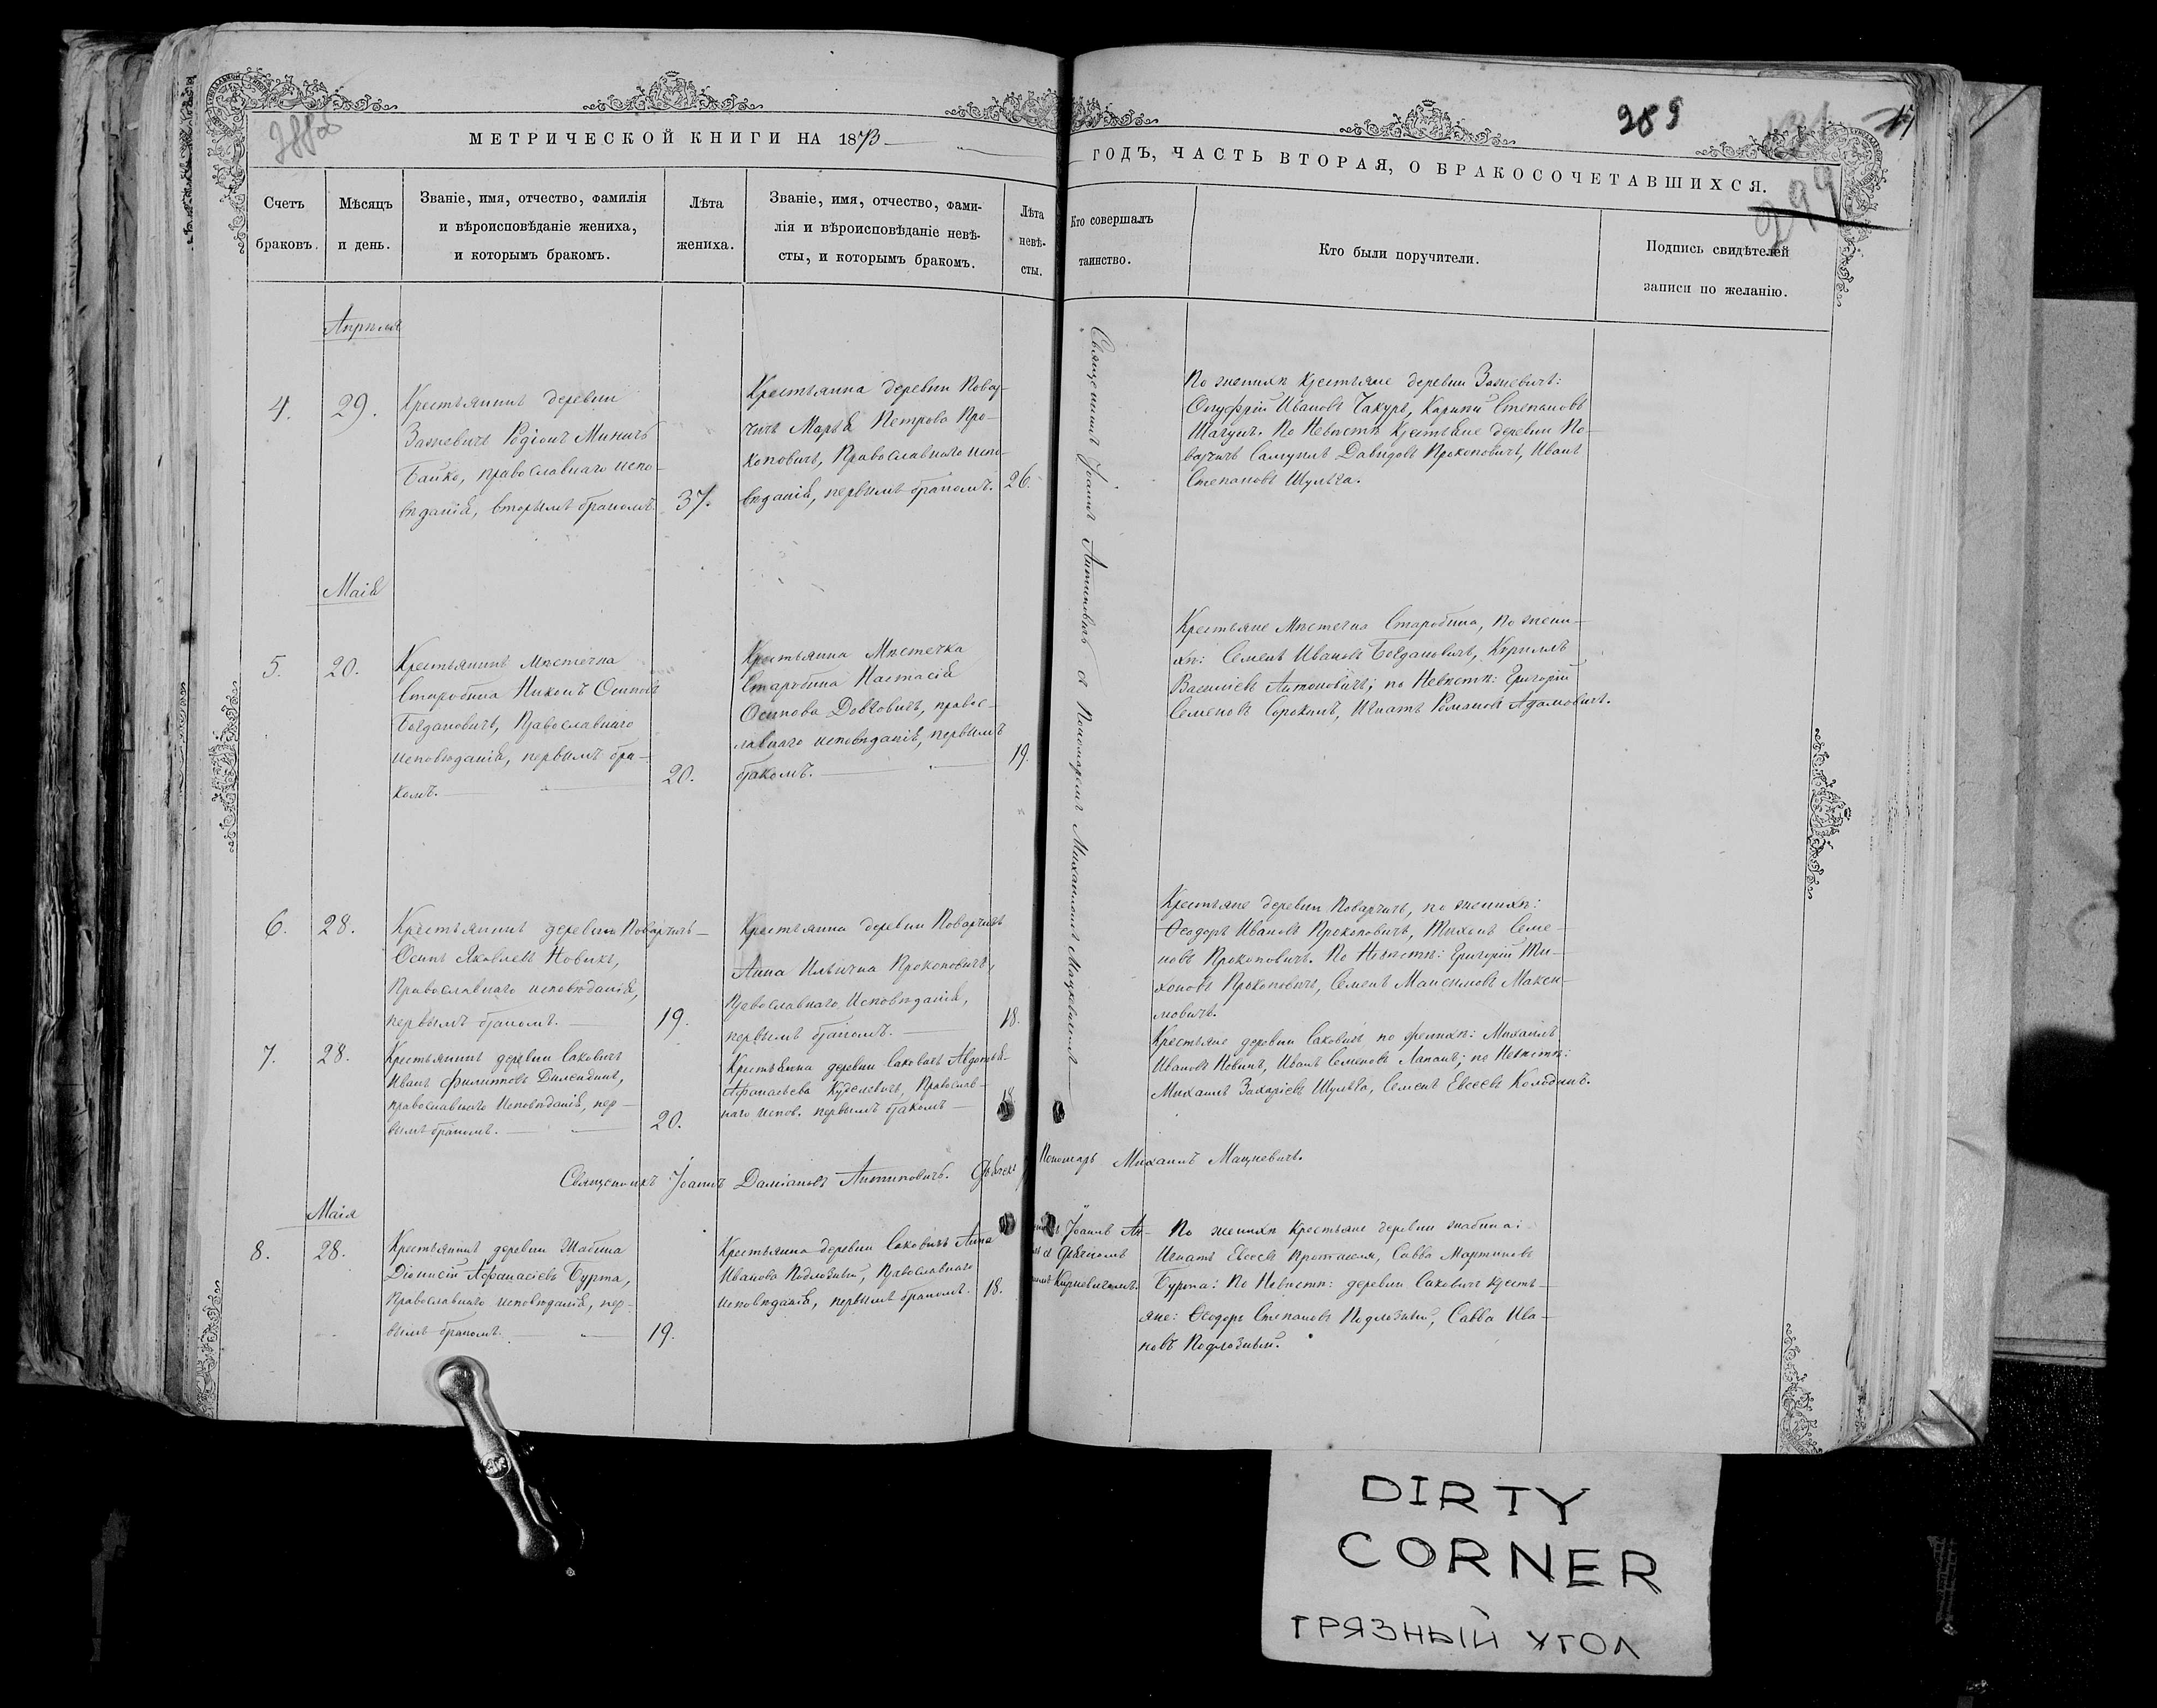 МЕТРИЧЕСКОЙ КНИГИ НА 1873
ГОДЪ, ЧАСТЬ ВТОРАЯ, О БРАКОСОЧЕТАВШИХСЯ.
289
299
Счетъ браковъ.
Мѣсяцъ и день.
Званіе, имя, отчество, фамилія
и вѣроисповѣданіе жениха,
и которымъ бракомъ.
Лѣта жениха.
Званіе, имя, отчество, фами-
лія и вѣроисповѣданіе невѣ-
сты, и которымъ бракомъ.
Лѣта невѣ-
сты.
Кто совершалъ таинство.
Кто были поручители.
Подпись свидѣтелей
записи по желанію.
Апрѣля
4.
29.
Крестьянинъ деревни
Родіонъ Мининъ
Байко, православнаго испо-
вѣданія, вторымъ бракомъ.
37.
Крестьянка деревни Повар-
чичъ Марья Петрова Про-
коповичъ, Православнаго испо-
вѣданія, первымъ бракомъ.
26.
Священникъ Іоаннъ Антиповичъ съ Пономаремъ Михаиломъ Мацкевичемъ
По женихѣ крестьяне деревни
Онуфрій Ивановъ Чакуръ, Степановъ
По Невѣстѣ крестьяне деревни По-
варчичъ Самуилъ Давидовъ Прокоповичъ, Иванъ
Степановъ Шульга.
Маія
5.
20.
Крестьянинъ Мѣстечка
Старобина Никонъ Осиповъ
Богдановичъ, Православнаго
исповѣданія, первымъ бра-
комъ.
20.
Крестьянка Мѣстечка
Старобина Настасія
Осипова Довговичъ, правос-
лавнаго исповѣданія, первымъ
бракомъ.
19.
Крестьяне Мѣстечка Старобина, по жени-
хѣ: Семенъ Ивановъ Богдановичъ, Кириллъ
Василіевъ Антоновичъ; по Невѣстѣ: Григорій
Семеновъ Сорокинъ, Игнатъ Романовъ Адамовичъ.
6.
28.
Крестьянинъ деревни Поварчичъ
Осипъ Яковлевъ Новикъ,
Православнаго исповѣданія,
первымъ бракомъ.
19.
Крестьянка деревни Поварчичъ
Анна Ильична Прокоповичъ,
Православнаго Исповѣданія,
первымъ бракомъ.
18.
Крестьяне деревни Поварчичъ, по женихѣ:
Ѳеодоръ Ивановъ Прокоповичъ, Тихонъ Семе-
новъ Прокоповичъ. По Невѣстѣ: Григорій Ти-
хоновъ Прокоповичъ, Семенъ Максимовъ Макси-
мовичъ.
7.
28.
Крестьянинъ деревни Саковичъ
Иванъ Филиповъ
православнаго Исповѣданія, пер-
вымъ бракомъ.
20.
Крестьянка деревни Саковичъ Авдотья
Афанасьева Куделевичъ, Православ-
наго испов. первымъ бракомъ
18
Крестьяне деревни Саковичъ по женихѣ: Михаилъ
Ивановъ Новикъ, Иванъ Семеновъ Лапанъ; по Невѣстѣ:
Михаилъ Захаріевъ Шульга, Семенъ Евсеевъ
Священникъ Іоаннъ Даміановъ Антиповичъ.
Пономарь Михаилъ Мацкевичъ.
Маія
8.
28.
Крестьянинъ деревни Шабина
Діонисій Афанасіевъ Бурта,
Православнаго исповѣданія, пер-
вымъ бракомъ.
19.
Крестьянка деревни Саковичъ Анна
Иванова Подлозный, Православнаго
исповѣданія, первымъ бракомъ.
18.
Іоаннъ Ан-
По женихѣ крестьяне деревни
Игнатъ Евсеевъ Савва Мартиновъ
Бурта: По Невѣстѣ: деревни Саковичъ кресть-
яне: Ѳеодоръ Степановъ Подлозный, Савва Ива-
новъ Подлозный.
DIRTY
CORNER
ГРЯЗНЫЙ УГОЛ